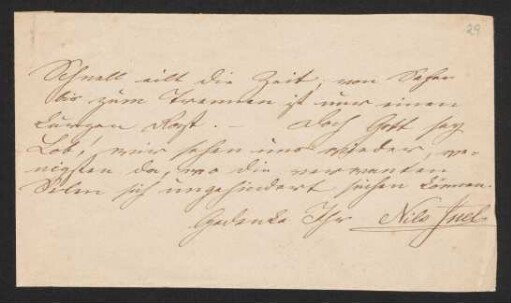 29
Schnell eilt die Zeit, von Sehen
bis zum Trennen ist nur einen
kurzen Rast. – Doch Gott sey
Lob, wir sehen uns wieder, we-
nigsten da, wo die verwanten
Selen sich ungehindert sehen können.
Gedenke Ihr Nils Juel